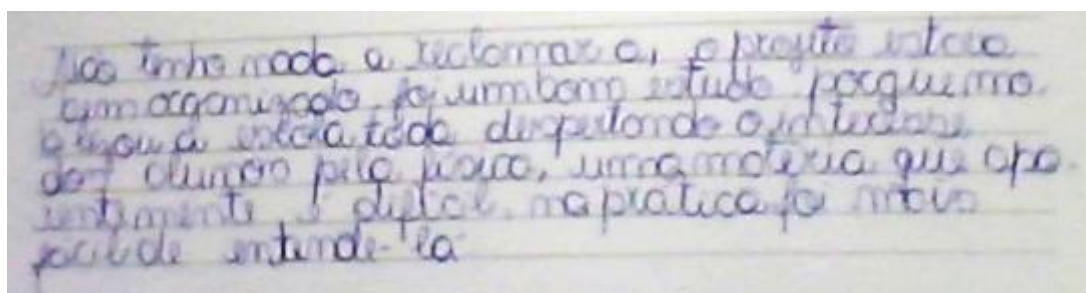 Não tenho nada a reclamar a, o projeto estava
bem organizado, foi um bom estudo porque mo
a escola toda despertando o interesse
dos alunos pela física, uma matéria que apa
rentemente é difícil, na prática foi mais
fácil de entende-la